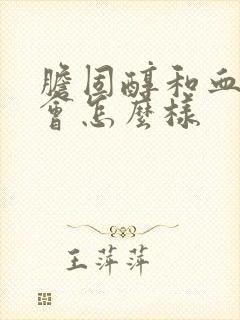 膽固醇和血
會怎麼樣
王萍萍